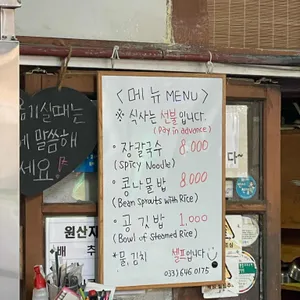 <메뉴 MENU>
※ 식사는 선불입니다.
(Pay in advance)
· 장칼국수 8,000
(Spicy Noodle)
· 콩나물밥 8,000
(Bean Sprouts with Rice)
· 공깃밥 1,000
(Bowl of Steamed Rice)
* 물, 김치 셀프입니다
033) 646 0175
기실때는
말씀해
세요!
원산지
배추
다~